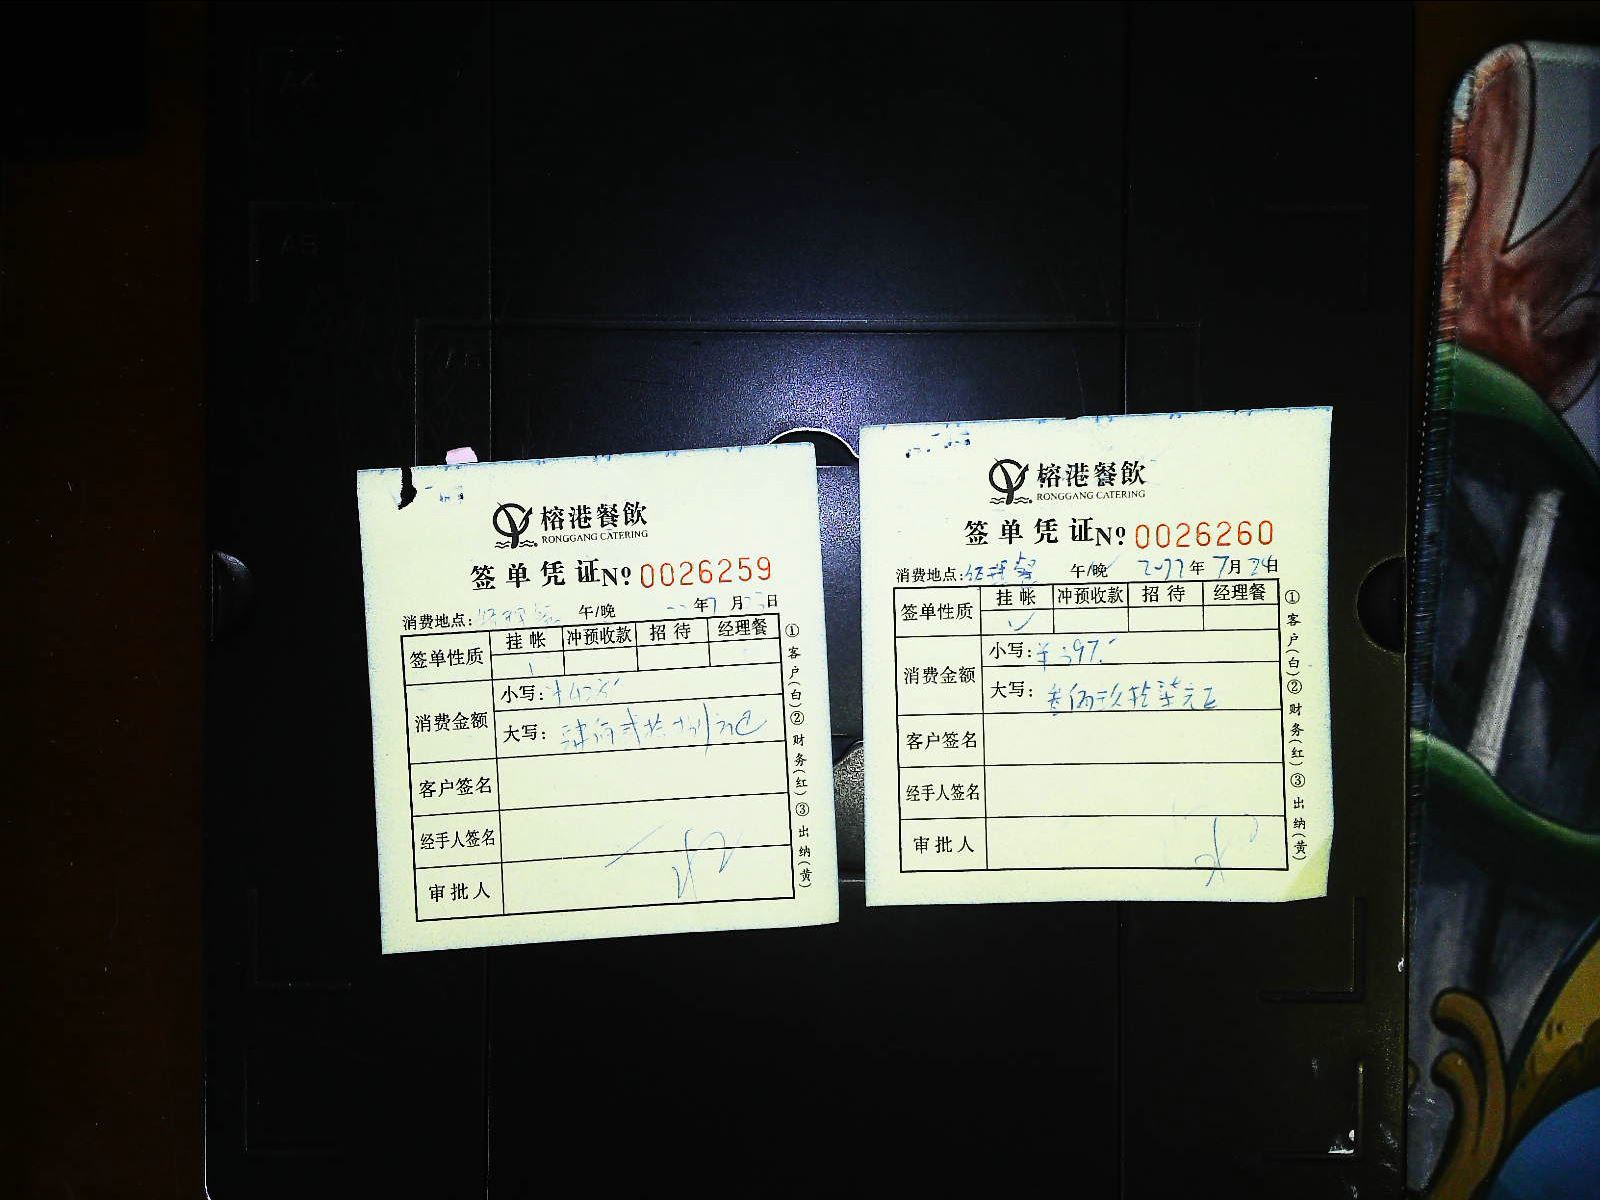 榕港餐飲
RONGGANG CATERING
签单凭证 Nº 0026259
消费地点: 经理餐 午/晚 年7月23日
签单性质 挂帐 冲预收款 招待 经理餐
消费金额
小写:
大写: 肆佰贰拾 元正
客户签名
经手人签名
审批人
①客户(白)②财务(红)③出纳(黄)
榕港餐飲
RONGGANG CATERING
签单凭证 Nº 0026260
消费地点: 经理餐 午/晚 2022年7月24日
签单性质 挂帐 冲预收款 招待 经理餐
✓
消费金额
小写: ¥397.-
大写: 叁佰玖拾柒元正
客户签名
经手人签名
审批人
①客户(白)②财务(红)③出纳(黄)
A4
A5